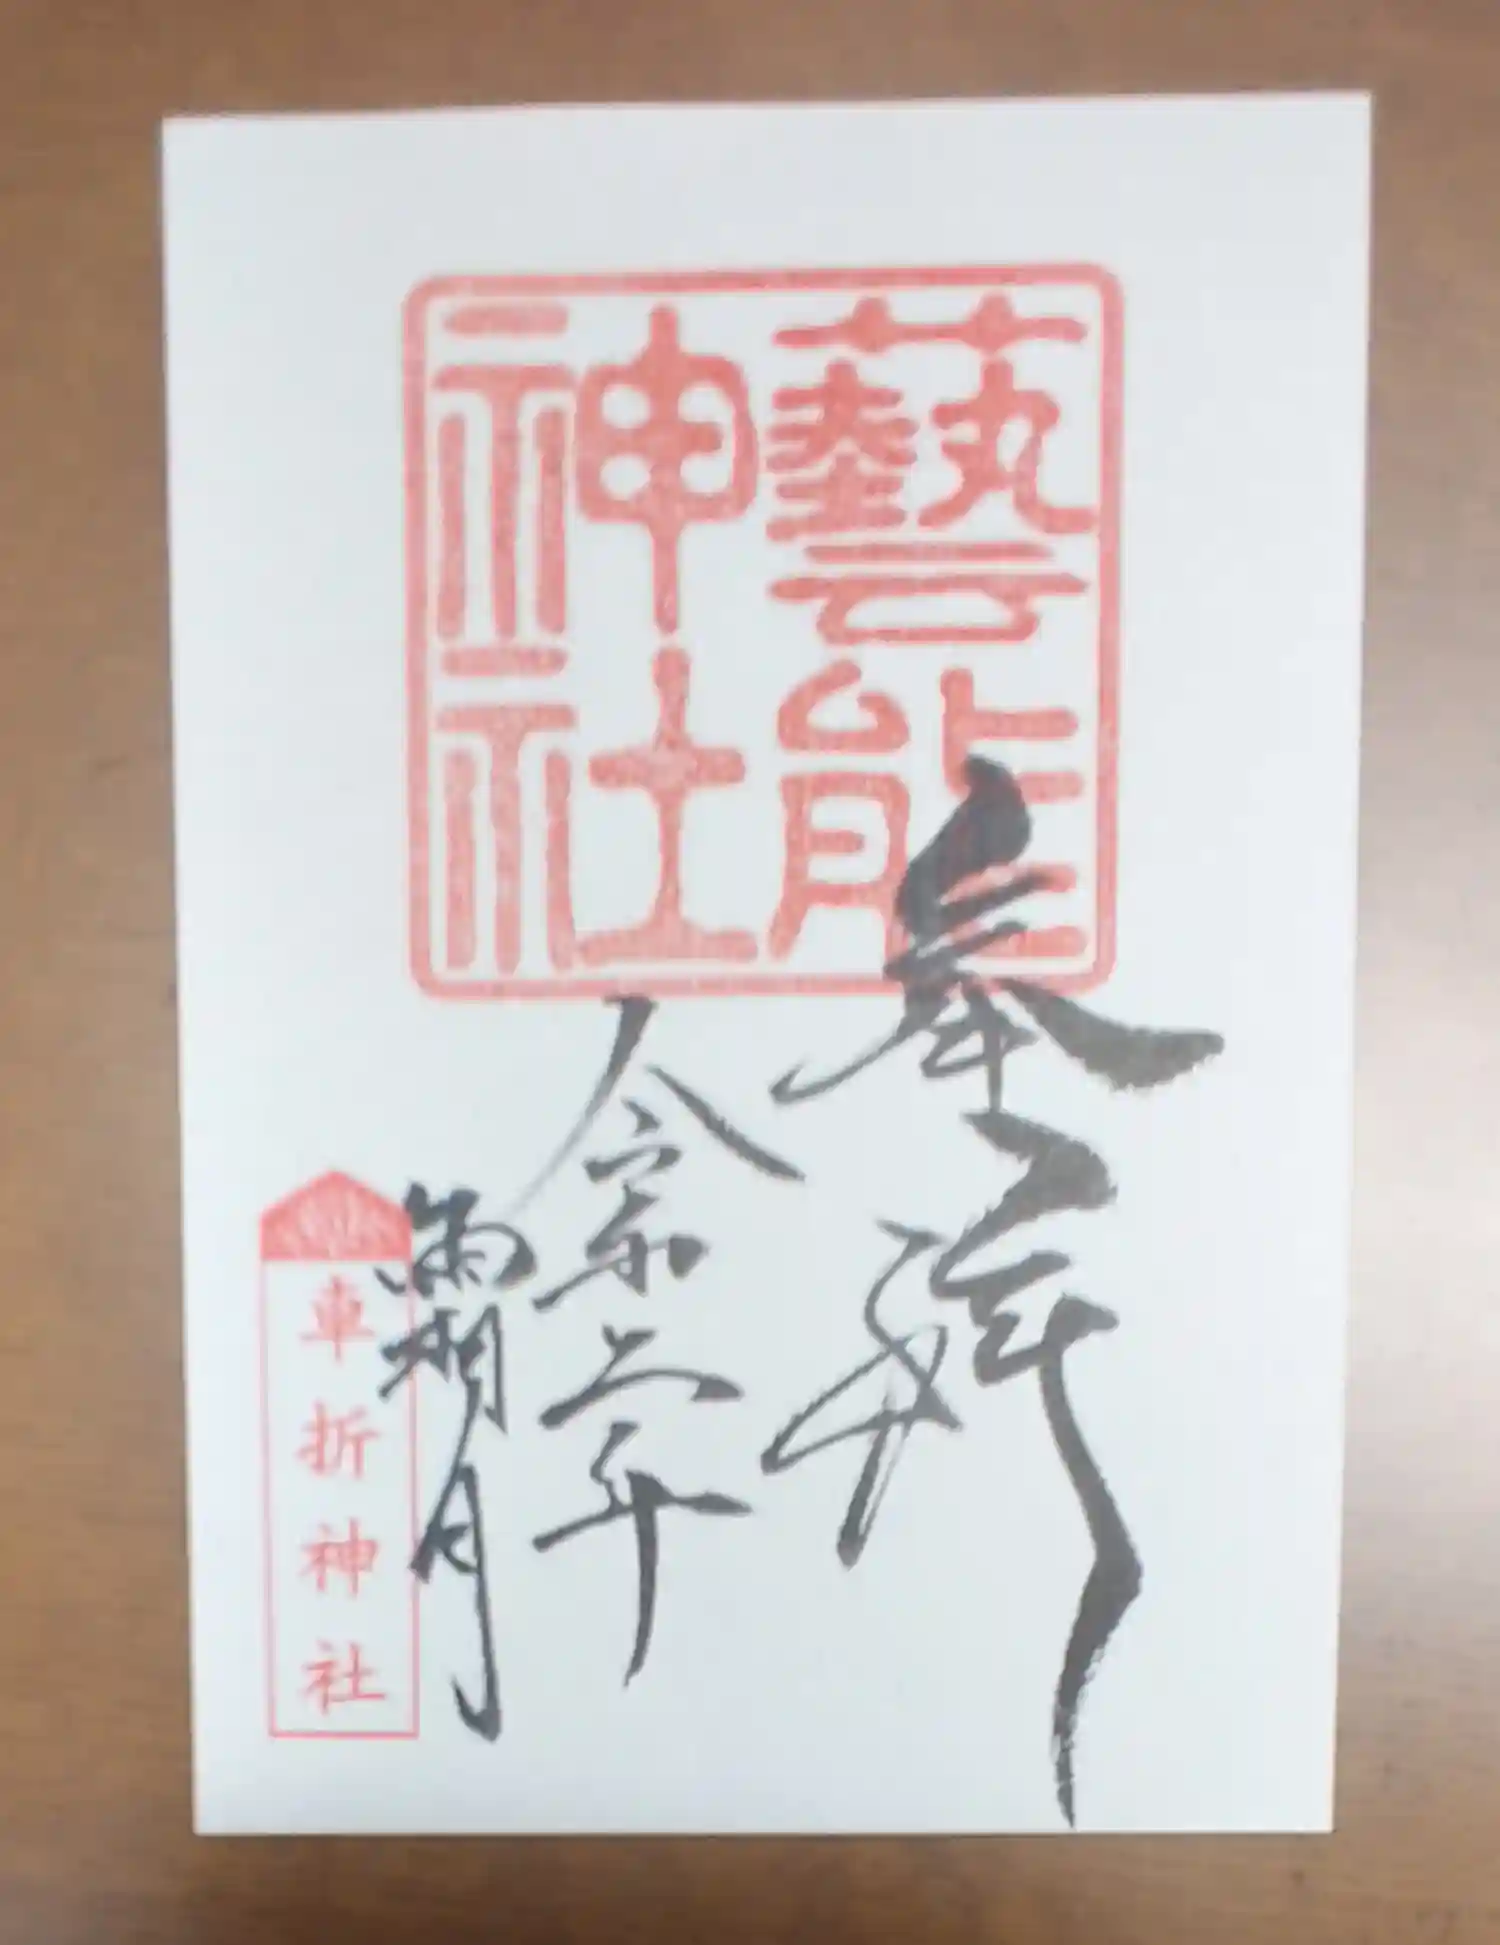 藝能
神社
奉拝
令和二年
霜月
車折神社